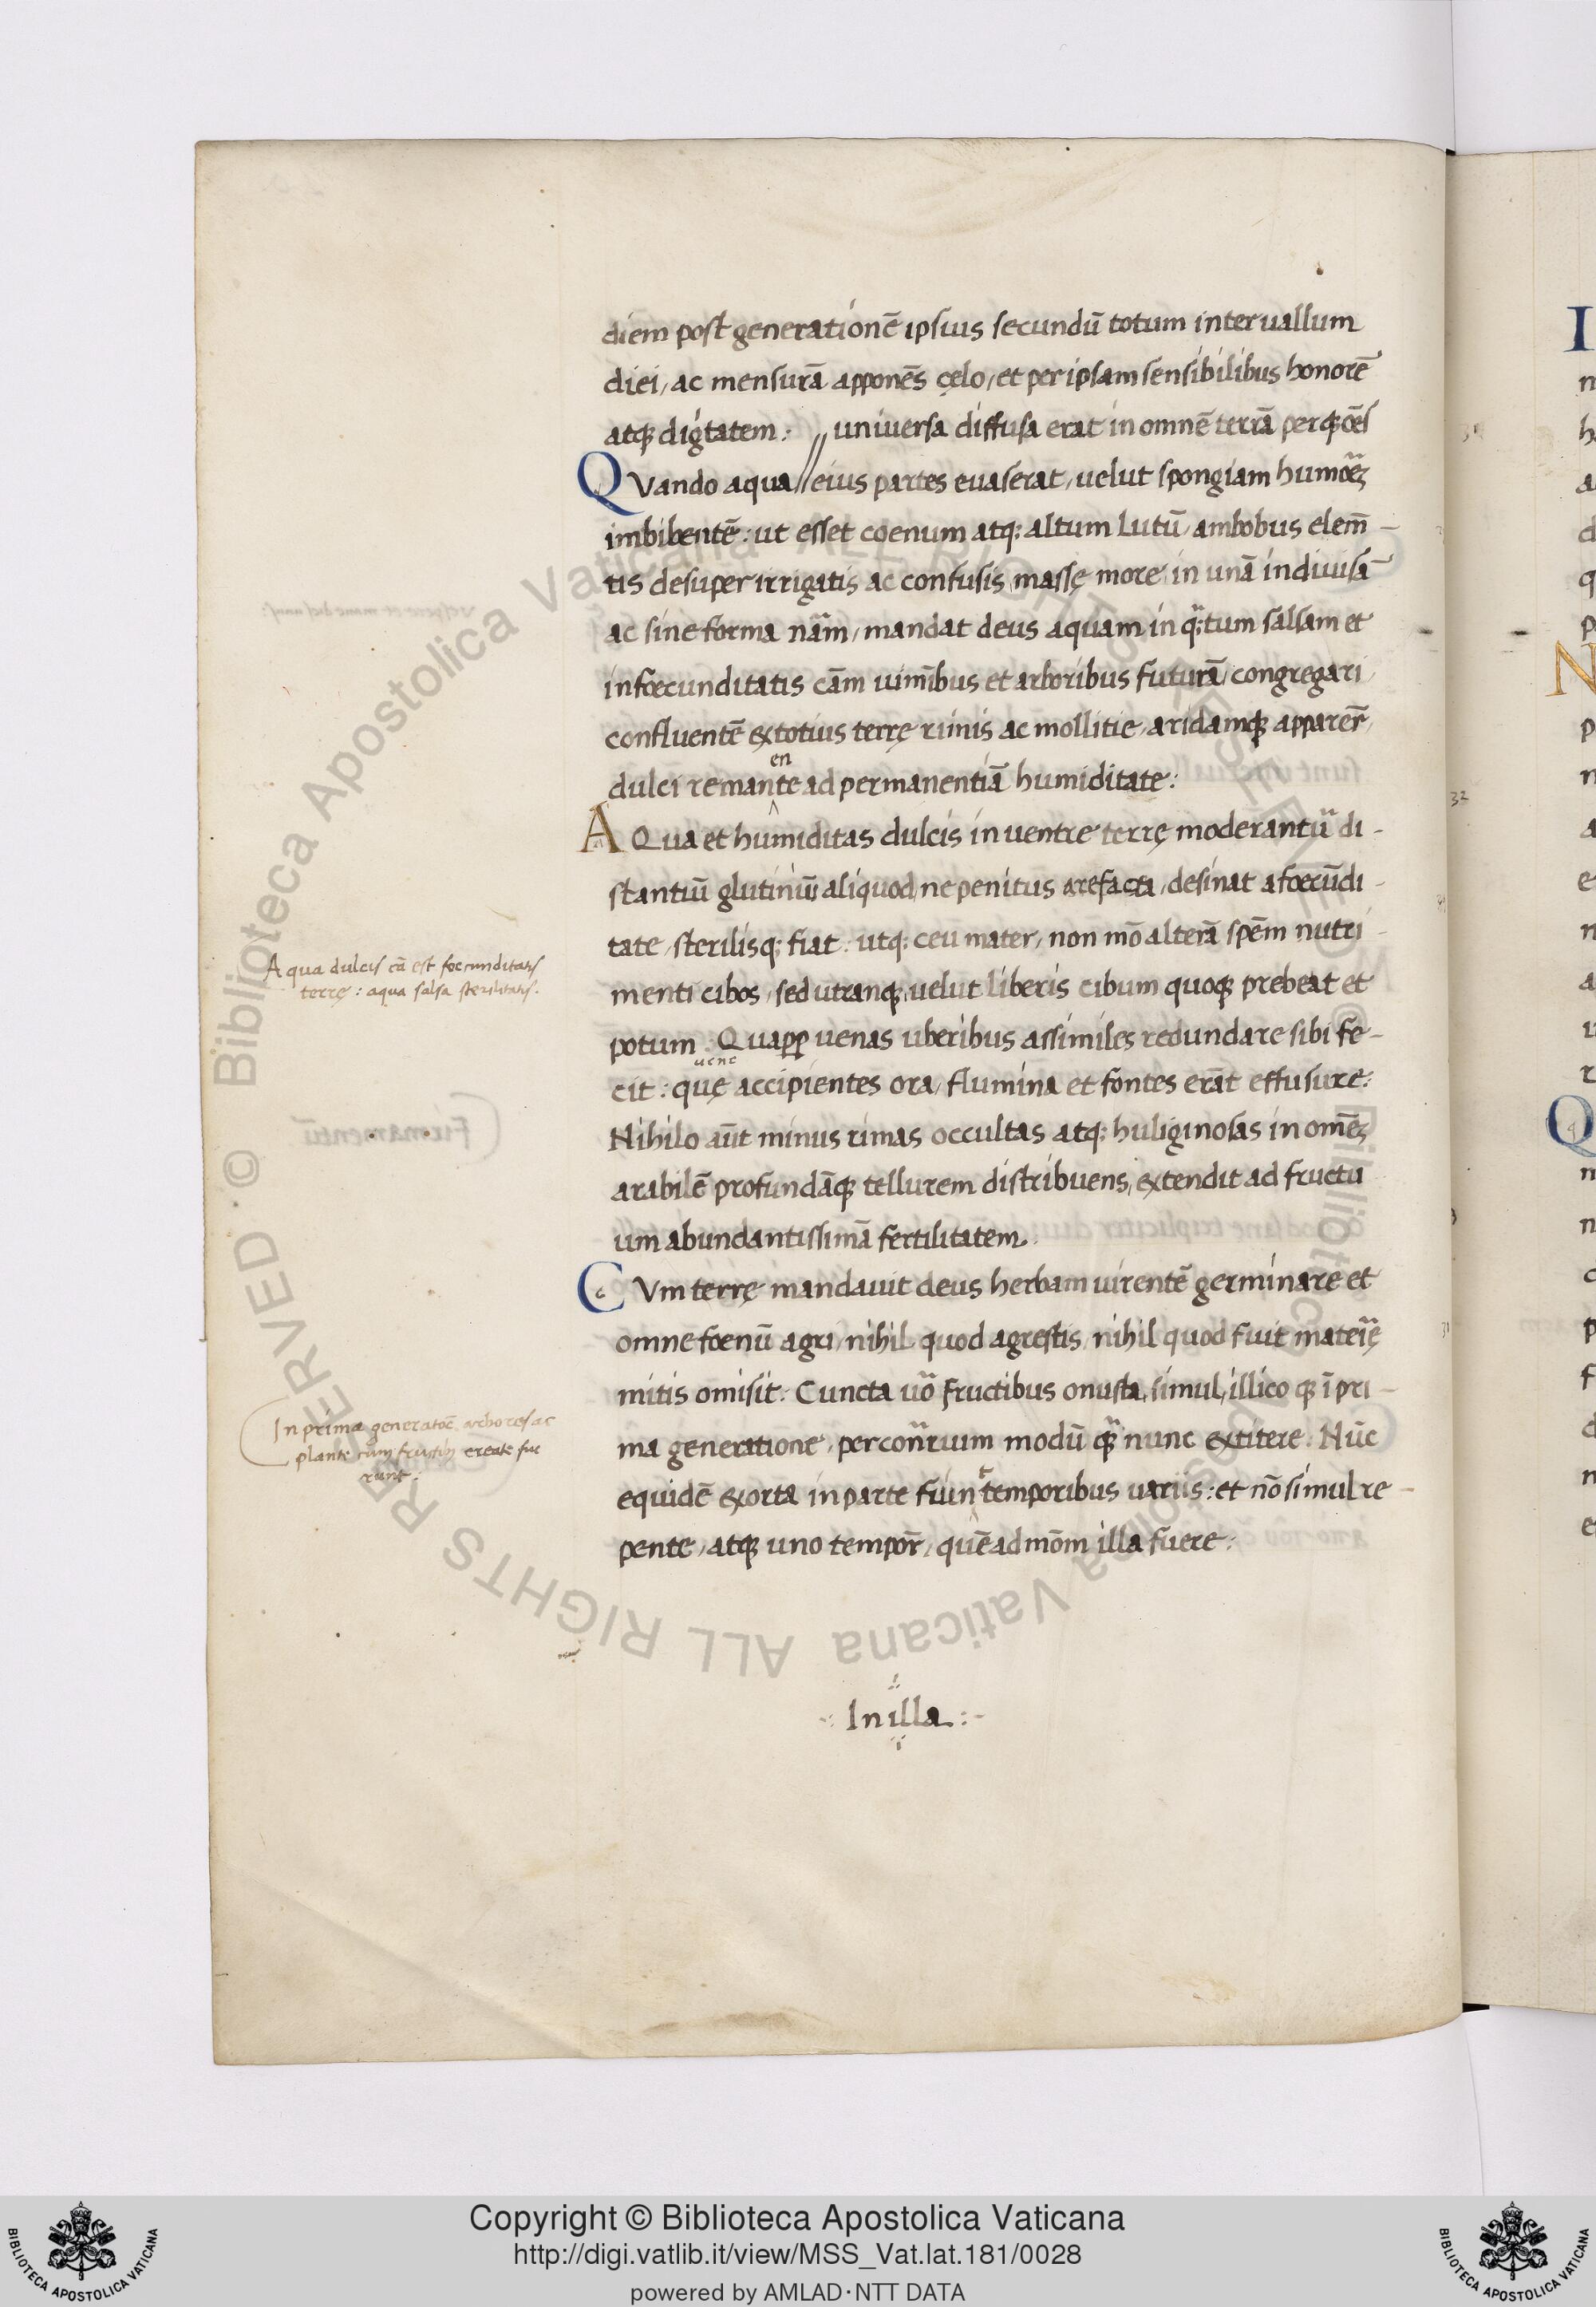 diem post generationē ipsius secundū totum interuallum
diei, ac mensurā apponēs cęlo, et per ipsam sensibilibus honorē
atqꝫ digtatem. // universa diffusa erat in omnē terrā perqꝫ oēs
QVando aqua // eius partes evaserat, uelut spongiam humoēꝫ
imbibentē: ut esset coenum atqꝫ altum Lutū, ambobus elem̄ -
tis desuper irrigatis ac confusis, massę more, in unā indiuisā
ac sine forma nām, mandat deus aquam in qꝫtum salsam et
infoecunditatis cām uimībus et arboribus futurā congregari,
confluentē ex totius terrę rimis ac mollitie, aridamqꝫ apparer̄,
en
dulci remante ad permanentiā humiditate:
AQua et humiditas dulcis in uentre terrę moderantū di -
stantiū glutiniū aliquod, ne penitus arefacta, desinat a foecūdi -
tate, sterilisqꝫ fiat: utqꝫ ceu mater, non mō alterā spēm nutri -
menti cibos, sed utranqꝫ uelut liberis cibum quoqꝫ prebeat et
potum. Quaꝓꝓ uenas uberibus assimiles redundare sibi fe -
uene
cit: quę accipientes ora, flumina et fontes erāt effusure:
Nihilo aūt minus rimas occultas atqꝫ huliginosas in omēꝫ
arabilē profundāqꝫ tellurem distribuens, extendit ad fructu
um abundantissimā fertilitatem.
CVm terrę mandauit deus herbam uirentē germinare et
omne foenū agri, nihil quod agrestis, nihil quod fuit mateīę
mitis omisit: Cuncta uō fructibus onusta, simul, illico qꝫ ī pri -
ma generatione, per con̄rium modū qꝫ nunc extitere: Nūc
equidē exorta in parte fiunt temporibus variis: et nō simul re -
pente, atqꝫ uno tempor̄, quēadmōm illa fuere:
In illa:-
Aqua dulcis cā est foecunditatis
terrę: aqua salsa sterilitatis.
In prima generatōe arbores ac
plante cum frugibꝫ create fue
runt:
32
Copyright © Biblioteca Apostolica Vaticana
http://digi.vatlib.it/view/MSS_Vat.lat.181/0028
powered by AMLAD·NTT DATA
BIBLIOTECA APOSTOLICA VATICANA
BIBLIOTECA APOSTOLICA VATICANA